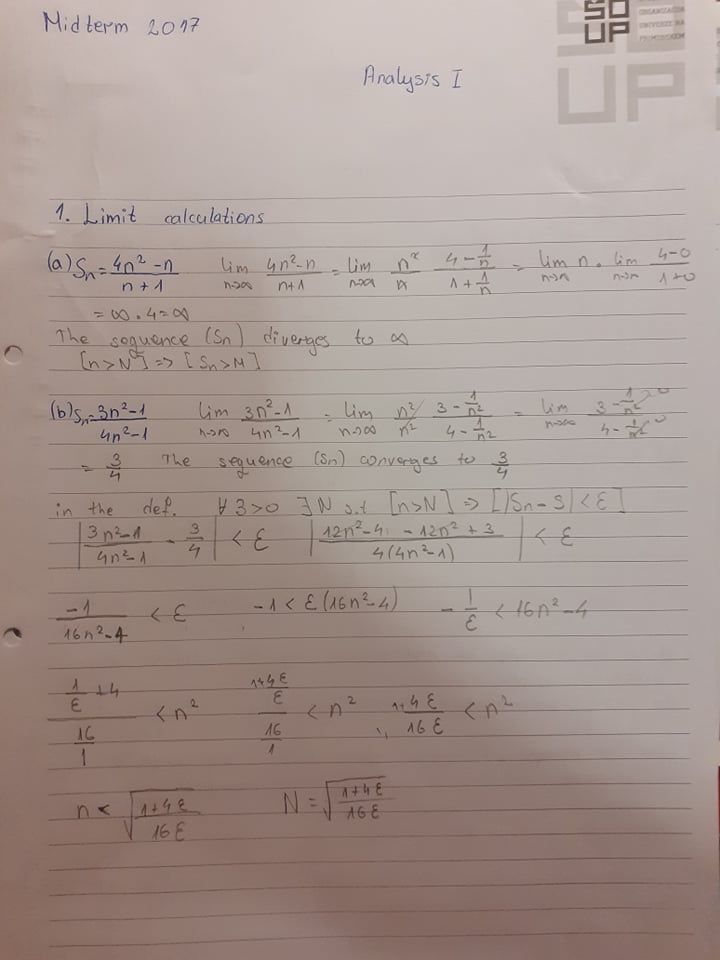 Midterm 2017
SO
UP
ORGANIZACIJA
UNIVERZE NA
PRIMORSKEM
SO
UP
Analysis I
1. Limit calculations
(a) Sn = (4n² - n)/(n + 1) lim n→∞ (4n² - n)/(n+1) = lim n→∞ n²/n (4 - 1/n)/(1 + 1/n) = lim n→∞ n · lim n→∞ (4-0)/(1+0)
= ∞ · 4 = ∞
The sequence (Sn) diverges to ∞
[n > N] => [Sn > M]
(b) Sn = (3n² - 1)/(4n² - 1) lim n→∞ (3n² - 1)/(4n² - 1) = lim n→∞ n²/n² (3 - 1/n²)/(4 - 1/n²) = lim n→∞ (3 - 1/n²)/(4 - 1/n²) 0 0
= 3/4 The sequence (Sn) converges to 3/4
in the def. ∀ 3>0 ∃N s.t [n>N] => [|Sn - S| < ε]
|(3n² - 1)/(4n² - 1) - 3/4| < ε |(12n² - 4 - 12n² + 3)/(4(4n² - 1))| < ε
-1/(16n² - 4) < ε -1 < ε(16n² - 4) -1/ε < 16n² - 4
(1/ε + 4)/(16/1) < n² ((1+4ε)/ε)/(16/1) < n² (1+4ε)/(16ε) < n²
n < √((1+4ε)/(16ε)) N = √((1+4ε)/(16ε))